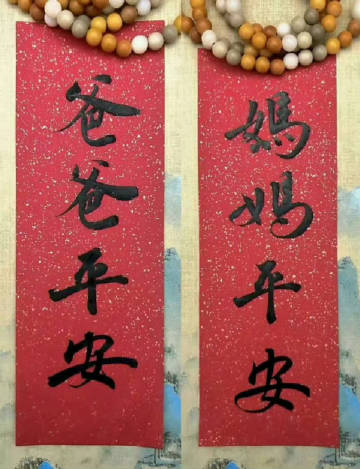 爸爸平安
媽媽平安